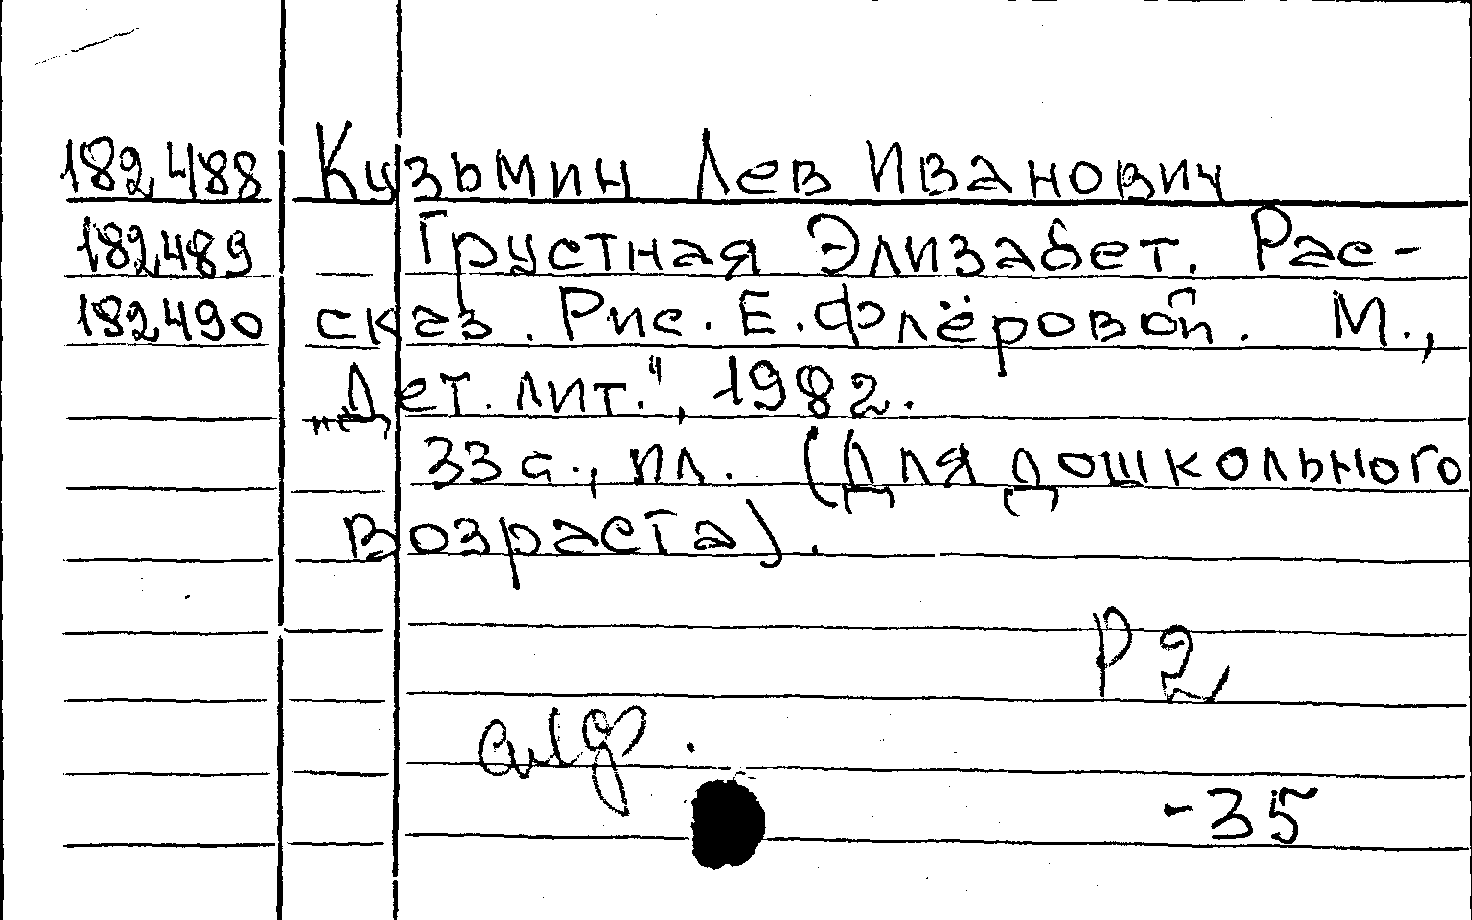 182488 Кузьмин Лев Иванович
182489 Грустная Элизабет. Рас-
182490 сказ. Рис. Е. Флёровой. М.,
"Дет. лит.", 1982.
33 с., ил. (Для дошкольного
возраста).
Р2
-35